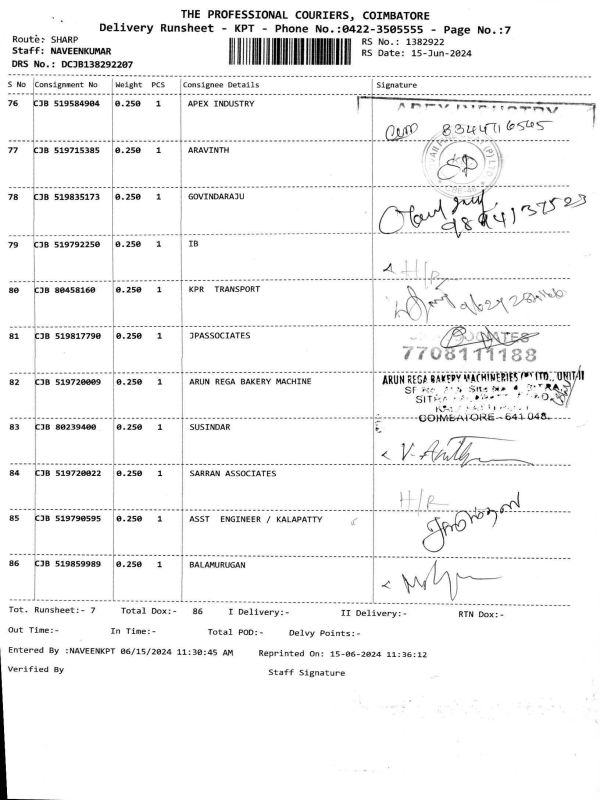 THE PROFESSIONAL COURIERS, COIMBATORE
Delivery Runsheet - KPT - Phone No.:0422-3505555 - Page No.:7
Route: SHARP RS No.: 1382922
Staff: NAVEENKUMAR RS Date: 15-Jun-2024
DRS No.: DCJB138292207
S No Consignment No Weight PCS Consignee Details Signature
76 CJB 519584904 0.250 1 APEX INDUSTRY APEX INDUSTRY
8344716545
77 CJB 519715385 0.250 1 ARAVINTH
78 CJB 519835173 0.250 1 GOVINDARAJU
9894137523
79 CJB 519792250 0.250 1 IB
H/R
80 CJB 80458160 0.250 1 KPR TRANSPORT
81 CJB 519817790 0.250 1 JPASSOCIATES
7708111188
82 CJB 519720009 0.250 1 ARUN REGA BAKERY MACHINE ARUN REGA BAKERY MACHINERIES (P) LTD., UNIT/II
COIMBATORE - 641 048.
83 CJB 80239400 0.250 1 SUSINDAR
84 CJB 519720022 0.250 1 SARRAN ASSOCIATES
H/R
85 CJB 519790595 0.250 1 ASST ENGINEER / KALAPATTY
86 CJB 519859989 0.250 1 BALAMURUGAN
Tot. Runsheet:- 7 Total Dox:- 86 I Delivery:- II Delivery:- RTN Dox:-
Out Time:- In Time:- Total POD:- Delvy Points:-
Entered By :NAVEENKPT 06/15/2024 11:30:45 AM Reprinted On: 15-06-2024 11:36:12
Verified By Staff Signature